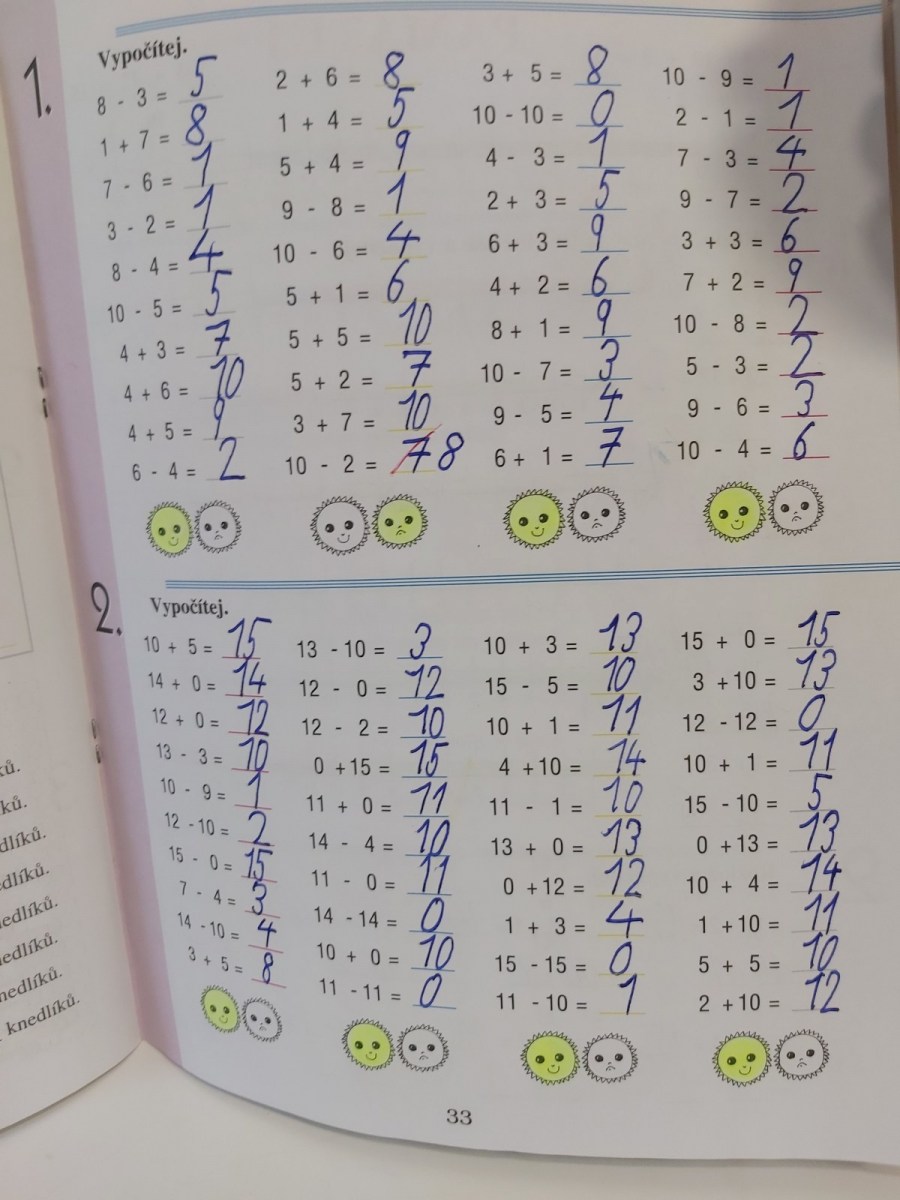 1.
Vypočítej.
8 - 3 = 5
1 + 7 = 8
7 - 6 = 1
3 - 2 = 1
8 - 4 = 4
10 - 5 = 5
4 + 3 = 7
4 + 6 = 10
4 + 5 = 9
6 - 4 = 2
2 + 6 = 8
1 + 4 = 5
5 + 4 = 9
9 - 8 = 1
10 - 6 = 4
5 + 1 = 6
5 + 5 = 10
5 + 2 = 7
3 + 7 = 10
10 - 2 = 7 8
3 + 5 = 8
10 - 10 = 0
4 - 3 = 1
2 + 3 = 5
6 + 3 = 9
4 + 2 = 6
8 + 1 = 9
10 - 7 = 3
9 - 5 = 4
6 + 1 = 7
10 - 9 = 1
2 - 1 = 1
7 - 3 = 4
9 - 7 = 2
3 + 3 = 6
7 + 2 = 9
10 - 8 = 2
5 - 3 = 2
9 - 6 = 3
10 - 4 = 6
2.
Vypočítej.
10 + 5 = 15
14 + 0 = 14
12 + 0 = 12
13 - 3 = 10
10 - 9 = 1
12 - 10 = 2
15 - 0 = 15
7 - 4 = 3
14 - 10 = 4
3 + 5 = 8
13 - 10 = 3
12 - 0 = 12
12 - 2 = 10
0 + 15 = 15
11 + 0 = 11
14 - 4 = 10
11 - 0 = 11
14 - 14 = 0
10 + 0 = 10
11 - 11 = 0
10 + 3 = 13
15 - 5 = 10
10 + 1 = 11
4 + 10 = 14
11 - 1 = 10
13 + 0 = 13
0 + 12 = 12
1 + 3 = 4
15 - 15 = 0
11 - 10 = 1
15 + 0 = 15
3 + 10 = 13
12 - 12 = 0
10 + 1 = 11
15 - 10 = 5
0 + 13 = 13
10 + 4 = 14
1 + 10 = 11
5 + 5 = 10
2 + 10 = 12
knedlíků.
33